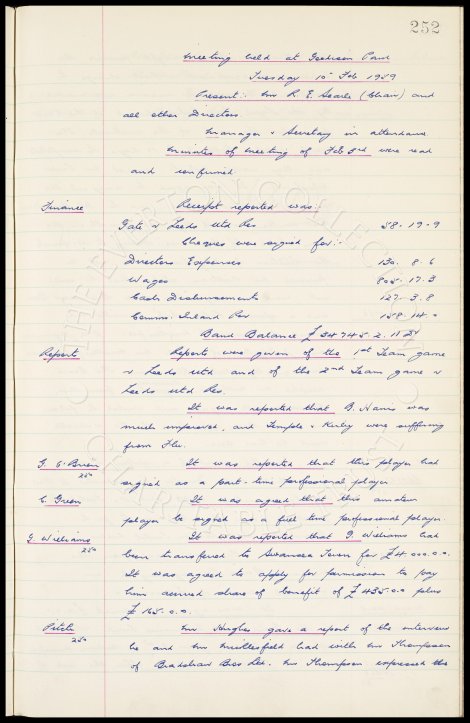 252
Meeting held at Goodison Park
Tuesday 10 Feb 1959
Present:- Mr R. E. Searle (Chair) and
all other Directors.
Manager & Secretary in attendance
Minutes of meeting of Feb 3rd were read
and confirmed
Finance
Receipt reported was:
Gate v Leeds Utd Res 58-19-9
Cheques were signed for:-
Directors Expenses 130. 8. 6
Wages 805-17.3
Cash Disbursements 127-3.8
Comms. Inland Rev 158.14.0
Bank Balance £34745.2.11
Reports
Reports were given of the 1st Team game
v Leeds Utd and of the 2nd Team game v
Leeds Utd Res.
It was reported that B. Harris was
much improved, and Temple & Kirby were suffering
from Flu.
G. O'Brien
250
It was reported that this player had
signed as a part-time professional player
C Green
It was agreed that this amateur
player be signed as a full time professional player.
G Williams
250
It was reported that G. Williams had
been transferred to Swansea Town for £4.000.0.0.
It was agreed to apply for permission to pay
him accrued share of benefit of £435.0.0 plus
£165.0.0.
Pitch
250
Mr Hughes gave a report of the interview
he and Mr Micklesfield had with Mr Thompson
of Bradshaw Bros Ltd. Mr Thompson expressed the
THE EVERTON COLLECTION
CHARITABLE TRUST